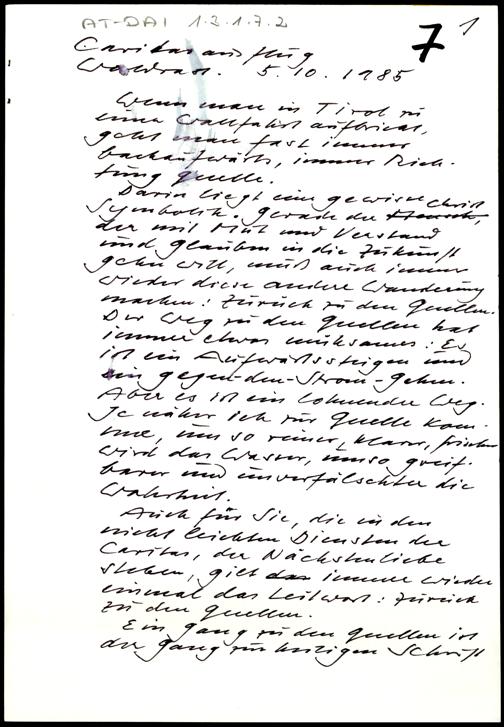 AT-DAI 1.3.1.7.2
7 1
Caritasausflug
Waldrast. 5.10.1985
Wenn man in Tirol zu
einer Wallfahrt aufbricht,
geht man fast immer
bachaufwärts, immer Rich-
tung Quelle.
Darin liegt eine gewisse
Symbolik. Gerade der Christ
der mit Mut und Verstand
und Glauben in die Zukunft
gehn will, muß auch immer
wieder diese andere Wanderung
machen: Zurück zu den Quellen.
Der Weg zu den Quellen hat
immer etwas mühsames: Es
ist ein Aufwärtssteigen und
ein gegen-den-Strom-Gehen.
Aber es ist ein lohnender Weg.
Je näher ich zur Quelle kom-
me, um so reiner, klarer, frischer
wird das Wasser, umso greif-
barer und unverfälschter die
Wahrheit.
Auch für Sie, die in den
nicht leichten Diensten der
Caritas, der Nächstenliebe
stehen, gilt immer wieder
einmal das Leitwort: Zurück
zu den Quellen.
Ein Gang zu den Quellen ist
der Gang zur heiligen Schrift